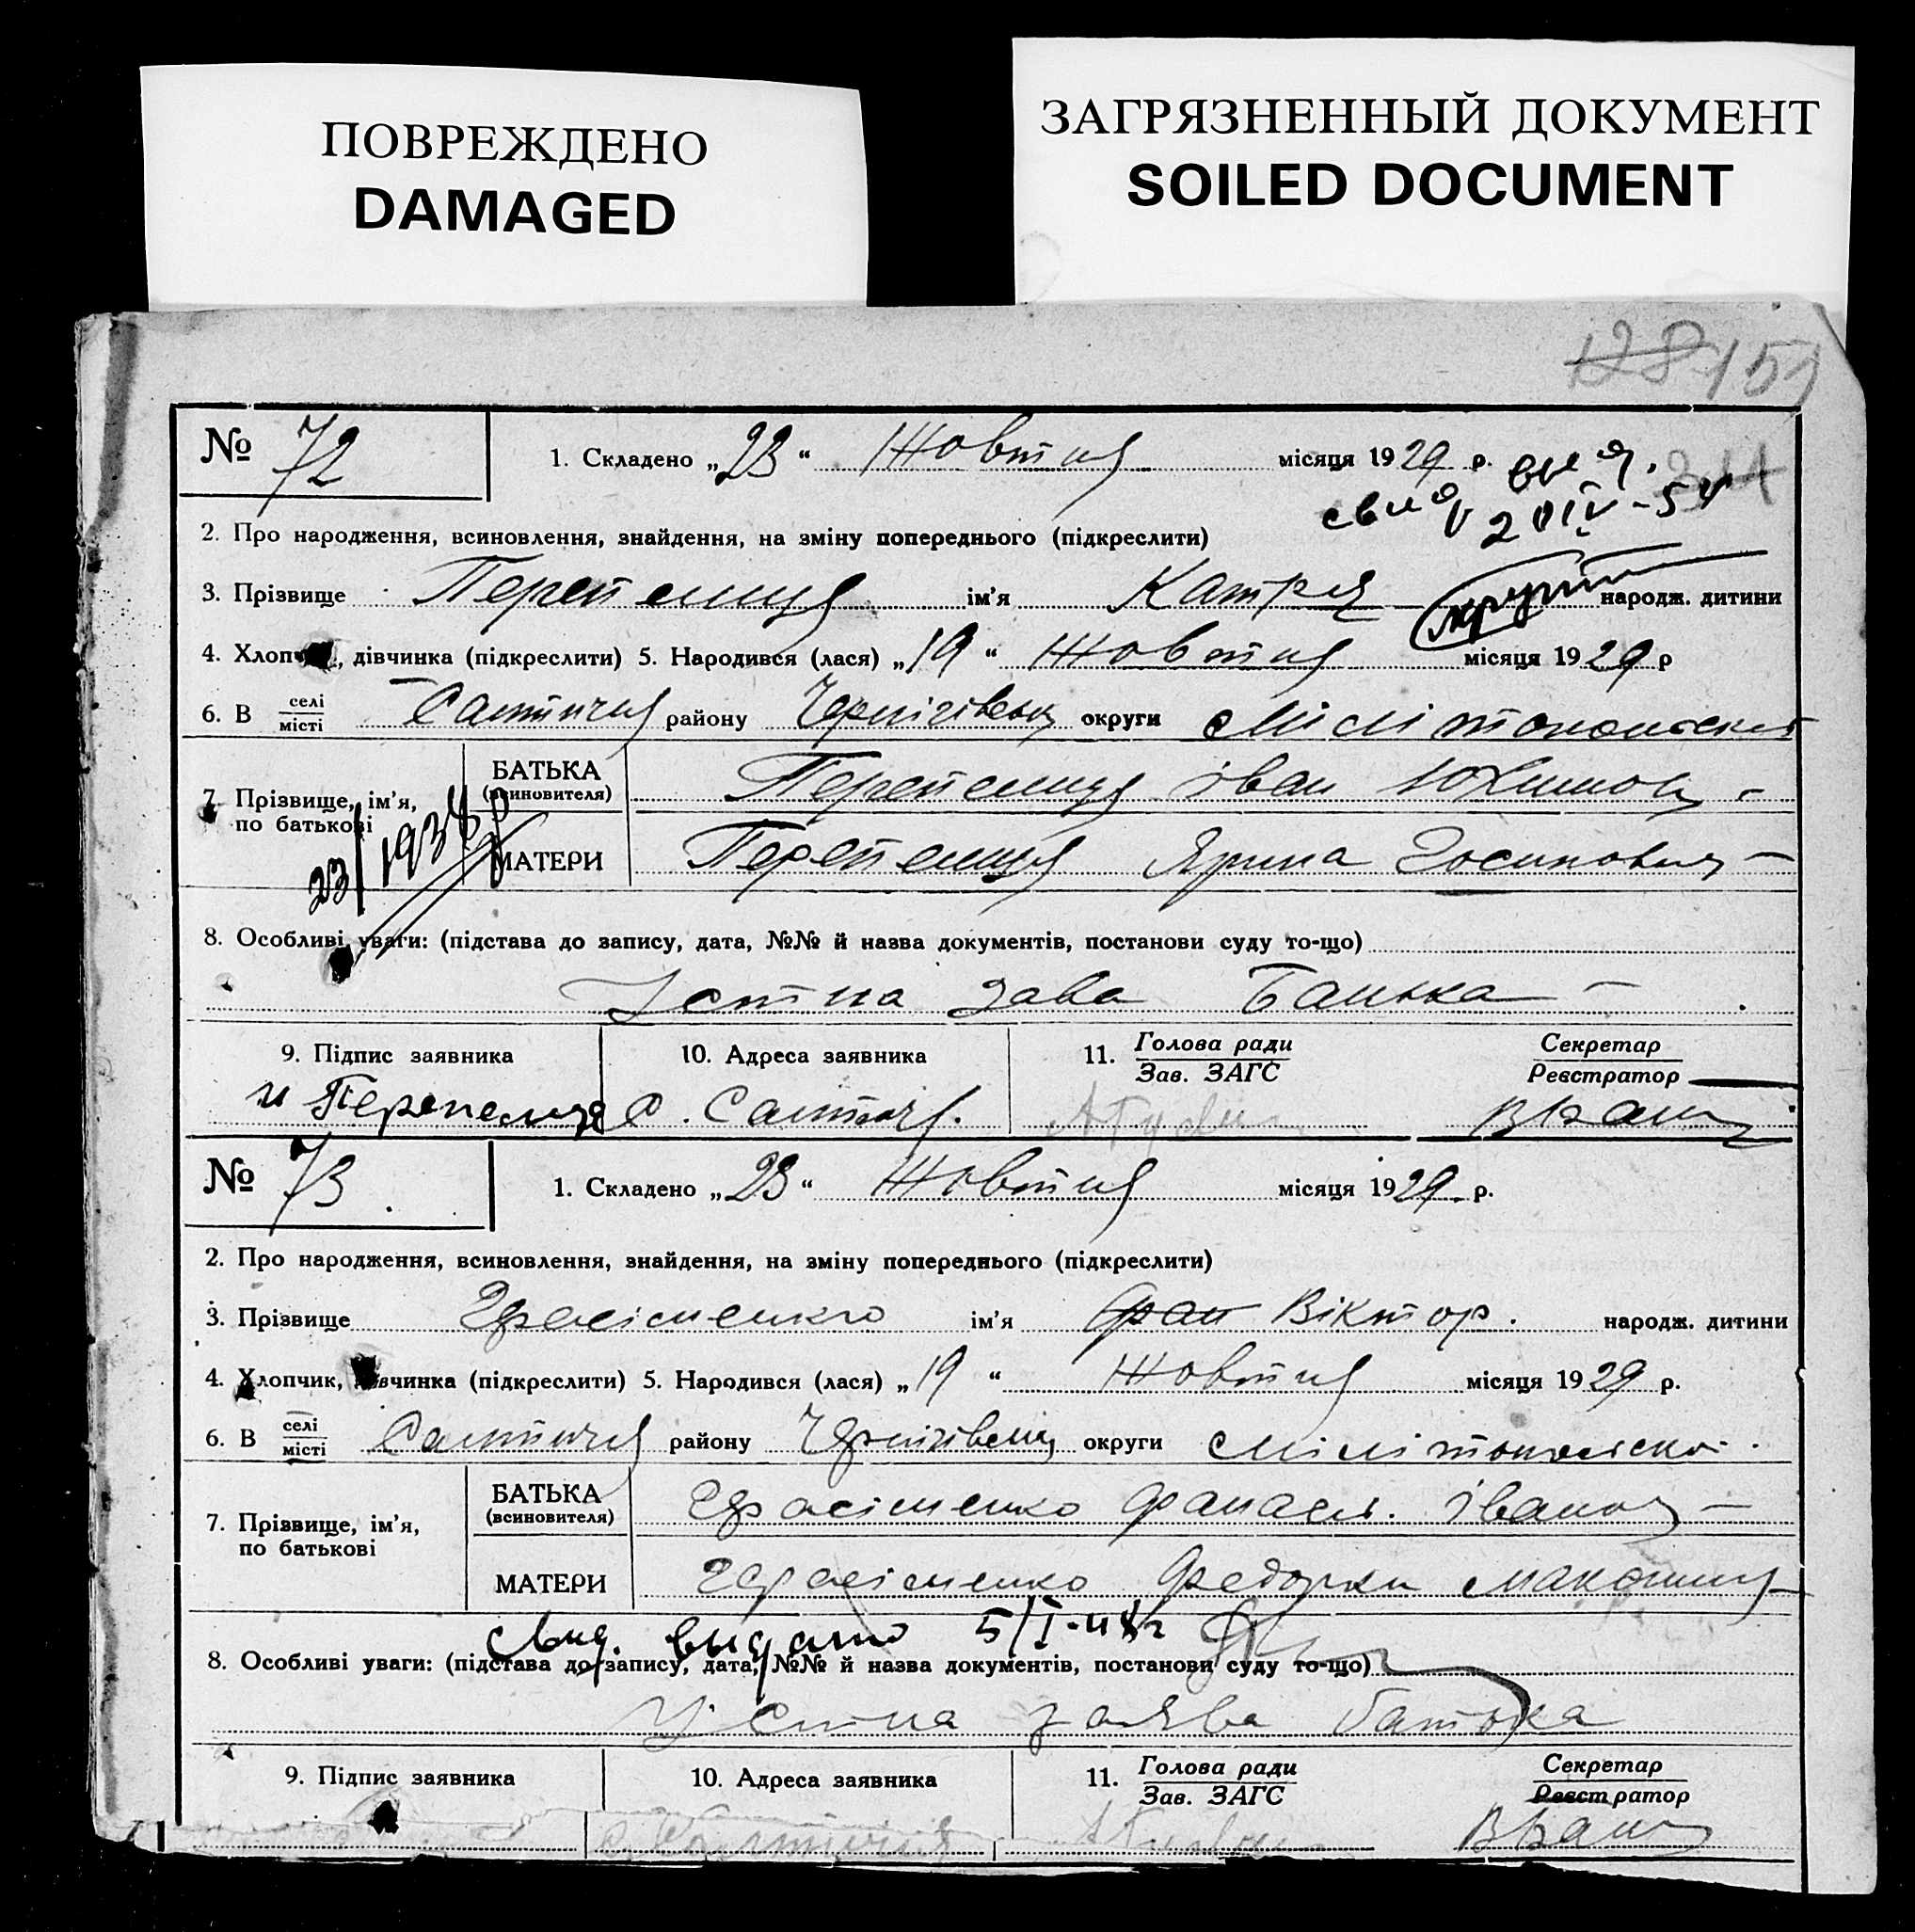 ПОВРЕЖДЕНО
DAMAGED
ЗАГРЯЗНЕННЫЙ ДОКУМЕНТ
SOILED DOCUMENT
128 151
№ 72 1. Складено „23“ Жовтня місяця 1929 р.
2. Про народження, всиновлення, знайдення, на зміну попереднього (підкреслити)
3. Прізвище Перепелиця ім’я Катря народж. дитини
4. Хлопч, дівчинка (підкреслити) 5. Народився (лася) „19“ Жовтня місяця 1929 р
6. В селі/місті Салтичія району Чернігівськ округи Мілітопольскої
7. Прізвище, ім’я, по батькові
БАТЬКА (всиновителя) Перепелиця Іван Юхимов
МАТЕРИ Перепелиця Ярина
23/
8. Особливі уваги: (підстава до запису, дата, №№ й назва документів, постанови суду то-що)
Устна зава Батька
9. Підпис заявника 10. Адреса заявника 11. Голова ради/Зав. ЗАГС Секретар/Реєстратор
и Перепелиця с. Салтич.
№ 73. 1. Складено „23“ Жовтня місяця 1929 р.
2. Про народження, всиновлення, знайдення, на зміну попереднього (підкреслити)
3. Прізвище Герасіменко ім’я Фан Віктор. народж. дитини
4. Хлопчик, вчинка (підкреслити) 5. Народився (лася) „19“ Жовтня місяця 1929 р.
6. В селі/місті Салтичія району Чернігівськ округи Мілітопольскої
7. Прізвище, ім’я, по батькові
БАТЬКА (всиновителя) Герасіменко Фанасій Іванов
МАТЕРИ Герасіменко Федорка Максим
Свид. видано 5/I-48г
8. Особливі уваги: (підстава до запису, дата, №№ й назва документів, постанови суду то-що)
Устна заява батька
9. Підпис заявника 10. Адреса заявника 11. Голова ради/Зав. ЗАГС Секретар/Реєстратор
с. Салтичія